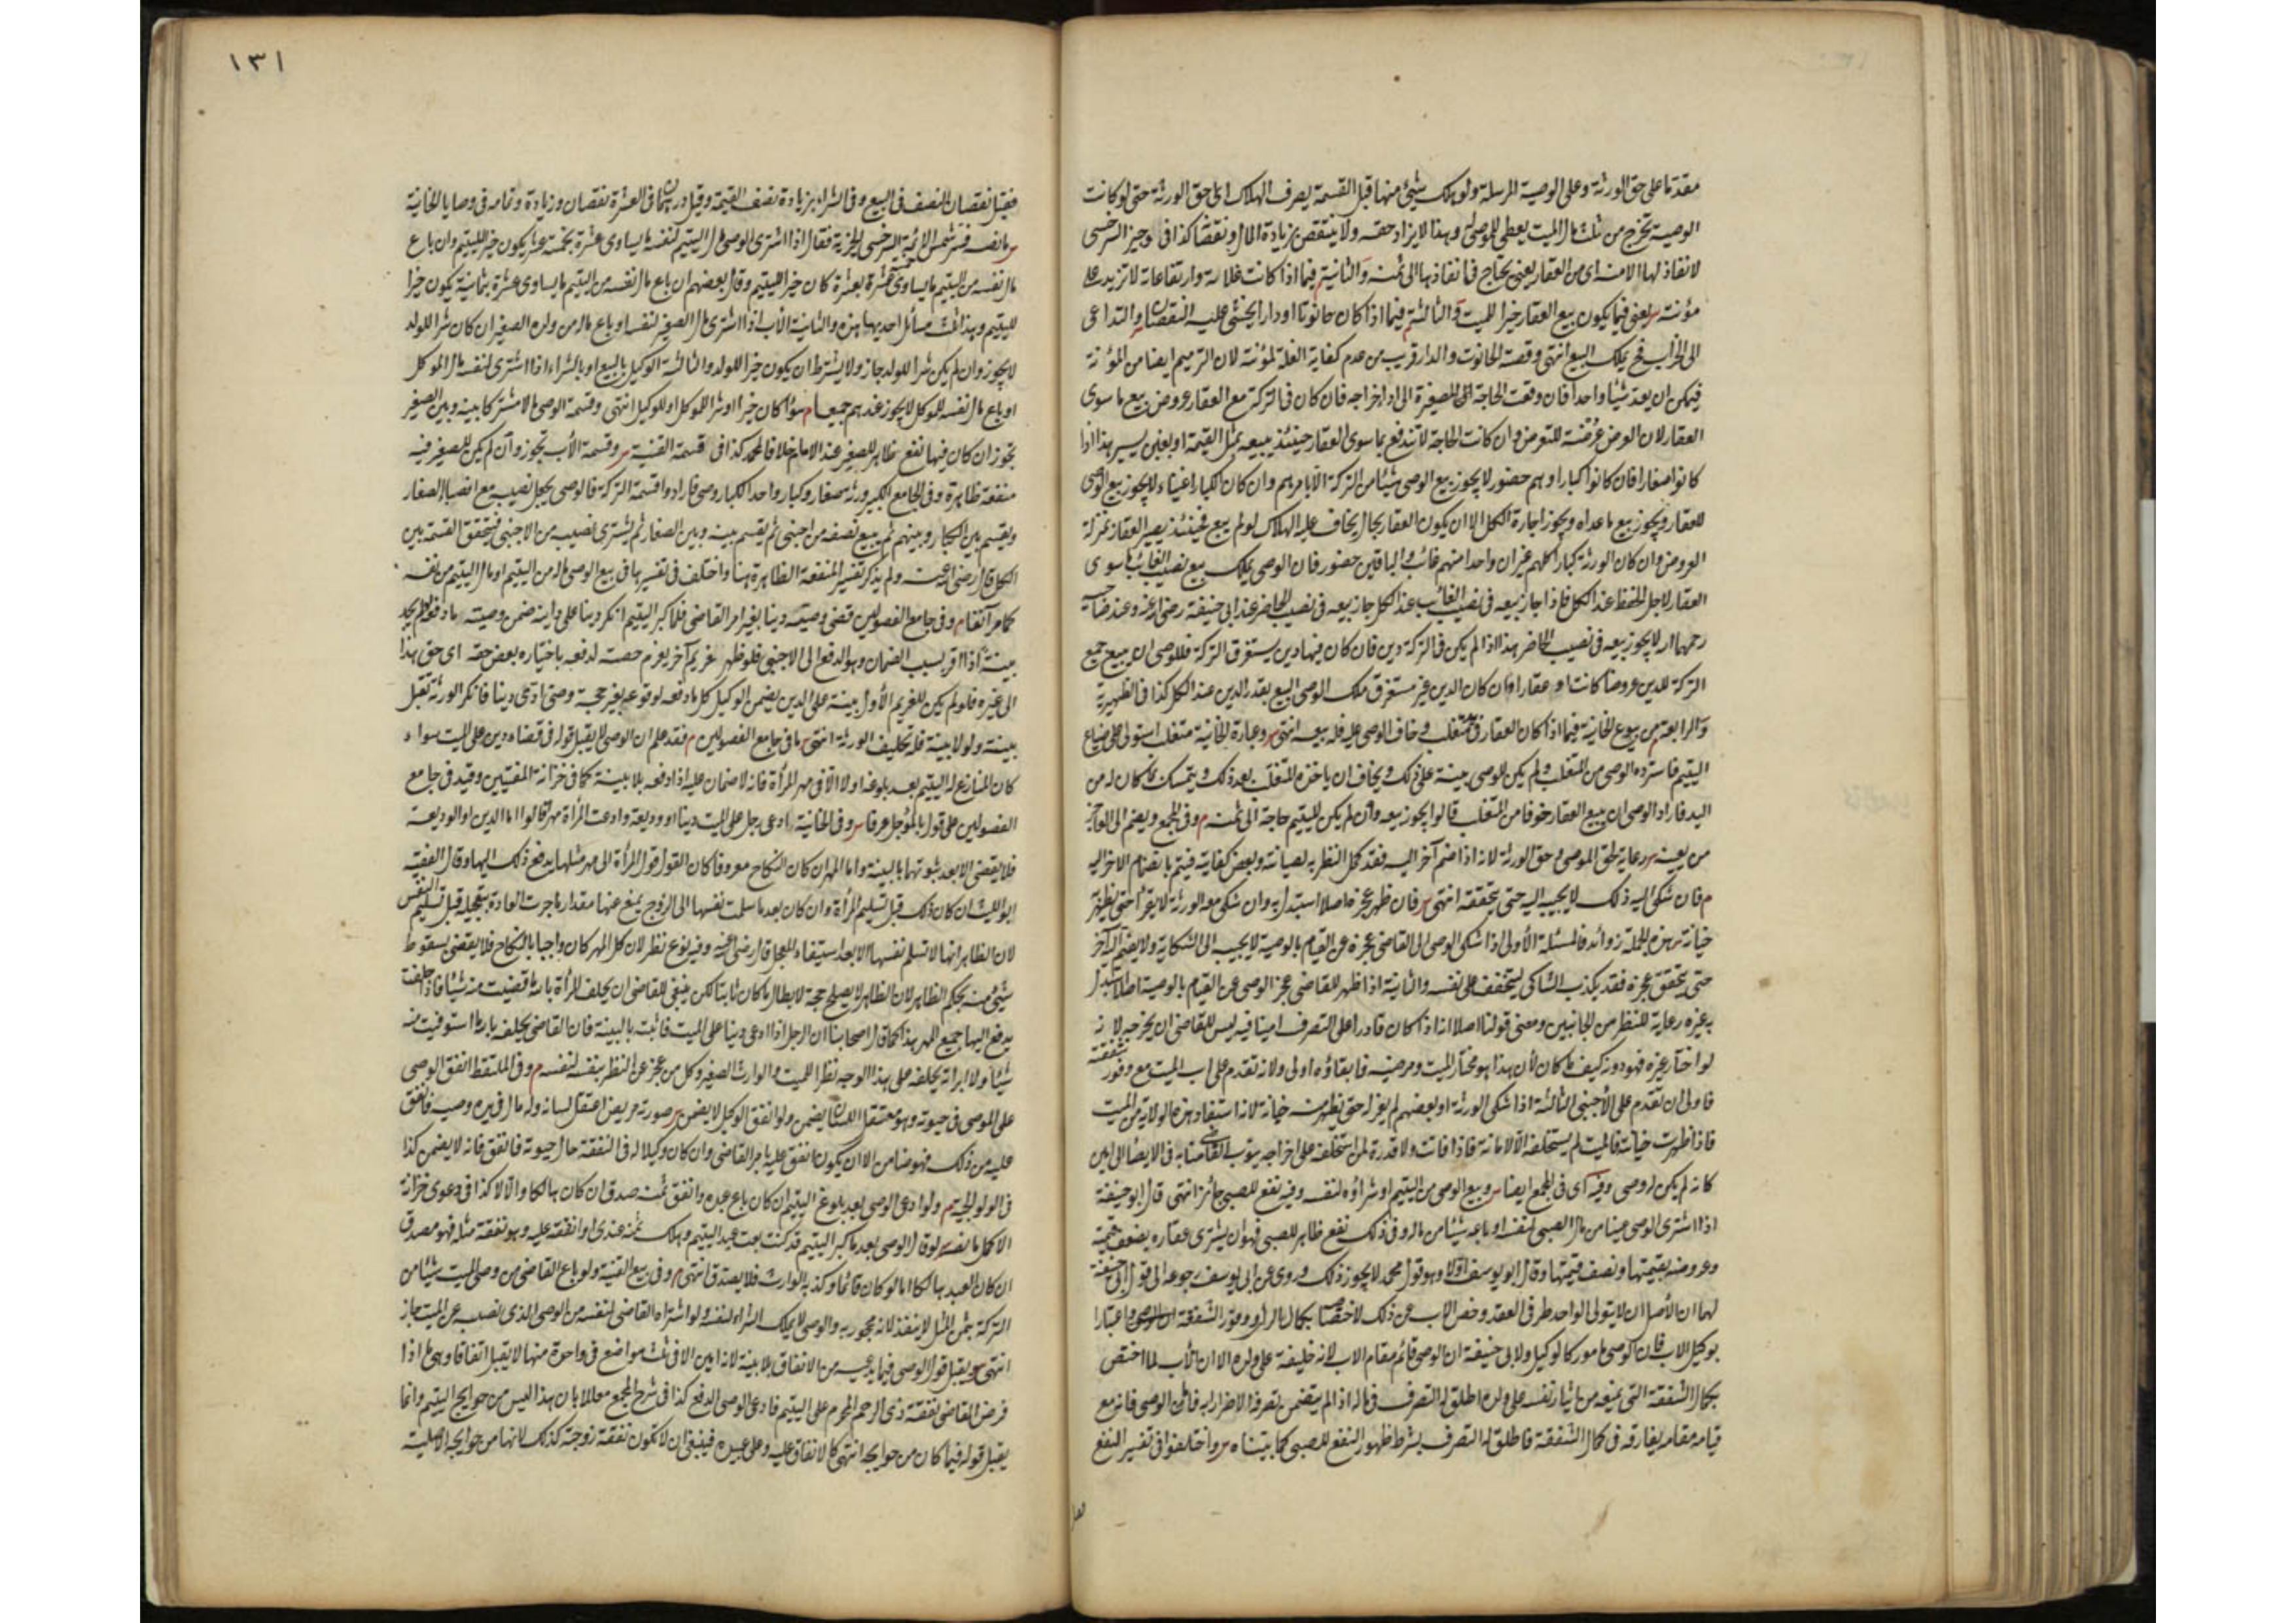 مقدما على حق الورثة وعلى الوصية المرسلة ولو هلك شيئ منها قبل القسمة يصرف الهلاك الى حق الورثة حتى لو كانت
الوصية تخرج من ثلث مال الميت يعطى للموصى له وبهذا لا يزاد حقه ولا ينتقص بزيادة المال ونقصه كذا فى وجيز السرخسى
لا نفاذ لها الا منه اى من العقار يعنى يحتاج فى انفاذها الى ثمنه والثانية فيما اذا كانت غلاته وارتفاعاته لا تزيد على
مؤنته يعنى فيما يكون بيع العقار خيرا للميت والثالثة فيما اذا كان حانوتا او دارا يخشى عليه النقصان والتداعى
الى الخراب فح يملك البيع انتهى وقصة الحانوت والدار قريب من عدم كفاية الغلة لمؤنته لان الترميم ايضا من المؤنة
فيمكن ان يعد شيئا واحدا فان وقعت الحاجة للصغيرة الى اداء خراجه فان كان فى التركة مع العقار عروض يبيع ما سوى
العقار لان العروض عرضة للتعوض وان كانت الحاجة لا تندفع بما سوى العقار حينئذ يبيعه بمثل القيمة او بغبن يسير هذا اذا
كانوا صغارا فان كانوا كبارا وهم حضور لا يجوز بيع الوصى شيئا من التركة الا بامرهم وان كان الكبار اغنياء لا يجوز بيع الوصى
للعقار ويجوز بيع ما عداه ويجوز اجارة الكل الا ان يكون العقار بحال يخاف عليه الهلاك لو لم يبع فحينئذ يصير العقار بمنزلة
العروض وان كان الورثة كبارا كلهم غير ان واحدا منهم غائب والباقين حضور فان الوصى يملك بيع نصيب الغائب ما سوى
العقار لاجل الحفظ عند الكل فاذا جاز بيعه فى نصيب الغائب عند الكل جاز بيعه فى نصيب الحاضر عند ابى حنيفة رضى الله عنه وعند صاحبيه
رحمهما الله لا يجوز بيعه فى نصيب الحاضر هذا اذا لم يكن فى التركة دين فان كان فيها دين يستغرق التركة فللوصى ان يبيع جميع
التركة للدين عروضا كانت او عقارا وان كان الدين غير مستغرق ملك الوصى البيع بقدر الدين عند الكل كذا فى الظهيرية
والرابعة من بيوع الخانية فيما اذا كان العقار فى يد متغلب وخاف الوصى عليه فله بيعه انتهى وعبارة الخانية متغلب استولى على ضياع
اليتيم فاسترده الوصى من المتغلب ولم يكن للوصى بينة على ذلك ويخاف ان ياخذه المتغلب بعد ذلك ويتمسك بما كان له من
اليد فاراد الوصى ان يبيع العقار خوفا من المتغلب قالوا يجوز بيعه وان لم يكن لليتيم حاجة الى ثمنه م وفى المجمع ويضم الى العاجز
من يعينه رعاية لحق الموصى وحق الورثة لانه اذا ضم آخر اليه فقد كمل النظر به لصيانته وبعض كفايته فيتم بانضمام الآخر اليه
م فان شكى اليه ذلك لا يجيبه اليه حتى يتحققه انتهى فان ظهر عجزه اصلا استبدل به وان شكى منه الورثة لا يعزله حتى يظهر
خيانة هذه المجلة زوائد فالمسئلة الأولى اذا شكى الوصى الى القاضى عجزه عن القيام بالوصية لا يجيب الى الشكاية ولا يضم اليه آخر
حتى يتحقق عجزه فقد يكذب الشاكى ليتخفف على نفسه والثانية اذا ظهر للقاضى عجز الوصى عن القيام بالوصية اصلا استبدل
به غيره رعاية للنظر من الجانبين ومعنى قولنا اصلا انه اذا كان قادرا على التصرف امينا فيه ليس للقاضى ان يخرجه لانه
لو اختار غيره فهو دونه كيف ما كان لأن هذا هو مختار الميت ومرضيه فابقاؤه اولى ولانه تقدم على اب الميت مع وفور شفقته
فاولى ان تقدم على الأجنبى الثالثة اذا شكى الورثة او بعضهم لم يعزله حتى يظهر منه خيانة لانه استفاد هذه الولاية من الميت
فاذا ظهرت خيانته فالميت لم يستخلفه الا لأمانته فاذا فاتت ولا قدرة لمن استخلفه على اخراجه ينوب القاضى منابه فى الايصاء الى امين
كانه لم يكن له وصى وفيه اى فى المجمع ايضا وبيع الوصى من اليتيم او شراؤه لنفسه وفيه نفع للصبى جائز انتهى قال ابو حنيفة
اذا اشترى الوصى عينا من مال الصبى لنفسه او باعه شيئا من ماله وفى ذلك نفع ظاهر للصبى فهو ان يشترى عقاره بضعف قيمته
وعروضه بقيمتها ونصف قيمتها وقال ابو يوسف اولا وهو قول محمد لا يجوز ذلك وروى عن ابى يوسف رجوعه الى قول ابى حنيفة
لهما ان الأصل ان لا يتولى الواحد طرفى العقد وخص الاب عن ذلك لاختصاصه بكمال الرأى ووفور الشفقة اعتبارا
بوكيل الاب فان الوصى مامور كالوكيل ولابى حنيفة ان الوصى قائم مقام الاب لانه خليفته على ولده الا ان الأب لما اختص
بكمال الشفقة التى تمنعه من ايثار نفسه على ولده اطلق له التصرف فى ماله اذا لم يتضمن تصرفه الاضرار به فاما الوصى فانه مع
قيامه مقامه يفارقه فى كمال الشفقة فاطلق له التصرف بشرط ظهور النفع للصبى كما بيناه واختلفوا فى تفسير النفع
١٣١
فقيل نقصان النصف فى البيع وفى الشراء بزيادة نصف القيمة وقيل درهما فى العشرة نقصان وزيادة وتمامه فى وصايا الخانية
ما نصه فسر شمس الائمة السرخسى الخيرية فقال اذا اشترى الوصى مال اليتيم لنفسه ما يساوى عشرة بخمسة عشر يكون خيرا لليتيم وان باع
مال نفسه من اليتيم ما يساوى خمسة عشرة بعشرة كان خيرا لليتيم وقال بعضهم ان باع مال نفسه من اليتيم ما يساوى عشرة بثمانية يكون خيرا
لليتيم وهذا ثلث مسائل احديها هذه والثانية الأب اذا اشترى مال الصغير لنفسه او باع ماله من ولده الصغير ان كان شرا للولد
لا يجوز وان لم يكن شرا للولد جاز ولا يشترط ان يكون خيرا للولد والثالثة الوكيل بالبيع او بالشراء اذا اشترى لنفسه مال الموكل
او باع مال نفسه للموكل لا يجوز عندهم جميعا سواء كان خيرا او شرا للموكل او للوكيل انتهى وقسمة الوصى مالا مشتركا بينه وبين الصغير
تجوز ان كان فيها نفع ظاهر للصغير عند الامام خلافا لمحمد كذا فى قسمة القنية وقسمة الأب تجوز وان لم يكن للصغير فيه
منفعة ظاهرة وفى الجامع الكبير ورثة صغار وكبار واحد الكبار وصى فاراد وا قسمة التركة فالوصى يجعل نصيبه مع انصباء الصغار
ويقسم بين الكبار وبينهم ثم يبيع نصفه من اجنبى ثم يقسم بينه وبين الصغار ثم يشترى نصيبه من الاجنبى فيتحقق القسمة بين
الكل قال رضى الله عنه ولم يذكر تفسير المنفعة الظاهرة هنا واختلف فى تفسيرها فى بيع الوصى ماله من اليتيم او مال اليتيم من نفسه
كما مر آنفا م وفى جامع الفصولين قضى وصيه دينا بغير امر القاضى فلما كبر اليتيم انكر دينا على ابيه ضمن وصيه ما دفعه لو لم يجد
بينة اذا اقر بسبب الضمان وهو الدفع الى الاجنبى فلو ظهر غريم آخر يغرم حصته لدفعه باختياره بعض حقه اى حق هذا
الى غيره فلو لم يكن للغريم الأول بينة على الدين يضمن الوكيل كل ما دفعه لوقوعه بغير حجة وصى ادى دينا فانكر الورثة تقبل
بينته ولو لا بينة فله تحليف الورثة انتهى ما فى جامع الفصولين م فقد علم ان الوصى لا يقبل قوله فى قضاء دين على الميت سواء
كان المنازع له اليتيم بعد بلوغه اولا الا فى مهر المرأة فانه لا ضمان عليه اذا دفعه بلا بينة كما فى خزانة المفتيين وقيد فى جامع
الفصولين على قول بالمؤجل عرفا وفى الخانية ادعى رجل على الميت دينا او وديعة وادعت المرأة مهرها قالوا اما الدين او الوديعة
فلا يقضى الا بعد ثبوتهما بالبينة واما المهر ان كان النكاح معروفا كان القول قول المرأة الى مهر مثلها يدفع ذلك اليها وقال الفقيه
ابو الليث ان كان ذلك قبل تسليم المرأة وان كان بعد ما سلمت نفسها الى الزوج يمنع عنها مقدار ما جرت العادة بتعجيله قبل تسليم النفس
لان الظاهر انها لا تسلم نفسها الا بعد استيفاء المعجل قال رضى الله عنه وفيه نوع نظر لان كل المهر كان واجبا بالنكاح فلا يقضى بسقوط
شيئ منه بحكم الظاهر لان الظاهر لا يصلح حجة لابطال ما كان ثابتا لكن ينبغى للقاضى ان يحلف المرأة بالله ما قبضت منه شيئا فاذا حلفت
يدفع اليها جميع المهر هذا كما قال اصحابنا ان الرجل اذا ادعى دينا على الميت فاثبت بالبينة فان القاضى يحلفه بالله ما استوفيت منه
شيئا ولا ابراته يحلفه على هذا الوجه نظرا للميت والوارث الصغير وكل من عجز عن النظر بنفسه لنفسه م وفى الملتقط انفق الوصى
على الموصى فى حيوته وهو معتقل اللسان يضمن ولو انفق الوكيل لا يضمن صورته مريض اعتقل لسانه وله مال فى يد وصيه فانفق
عليه من ذلك فهو ضامن الا ان يكون انفق عليه بامر القاضى وان كان وكيلا له فى النفقة حال حيوته فانفق فانه لا يضمن كذا
فى الولوالجية م ولو ادعى الوصى بعد بلوغ اليتيم ان كان باع عبده وانفق ثمنه صدق ان كان هالكا والا لا كذا فى دعوى خزانة
الاكمل ما نصه لو قال الوصى بعد ما كبر اليتيم قد كنت بعت عبد اليتيم وهلك ثمنه عندى او انفقته عليه وهو نفقة مثله فهو مصدق
ان كان العبد هالكا اما لو كان قائما وكذبه الوارث فلا يصدق انتهى م وفى بيع القنية ولو باع القاضى من وصى الميت شيئا من
التركة بثمن المثل لا ينفذ لانه محجور به والوصى لا يملك الشراء لنفسه ولو اشتراه القاضى لنفسه من الوصى الذى نصبه عن الميت جاز
انتهى ويقبل قول الوصى فيما يدعيه من الانفاق بلا بينة لانه امين الا فى ثلث مواضع فى واحدة منها لا يقبل اتفاقا وهى ما اذا
فرض القاضى نفقة ذى الرحم المحرم على اليتيم فادعى الوصى الدفع كذا فى شرح المجمع معللا بان هذا ليس من حوايج اليتيم وانما
يقبل قوله فيما كان من حوايجه انتهى كالانفاق عليه وعلى عبيده فينبغى ان لا تكون نفقة زوجته كذلك لانها من حوايجه الاصلية